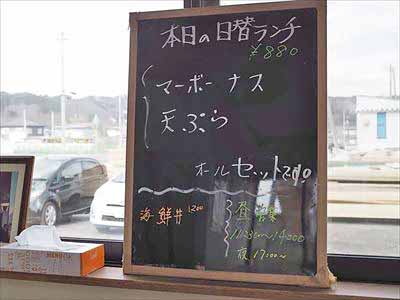 本日の日替ランチ
¥880
マーボーナス
天ぷら
オールセット
海鮮丼 1200
昼 営業
夜 17:00~